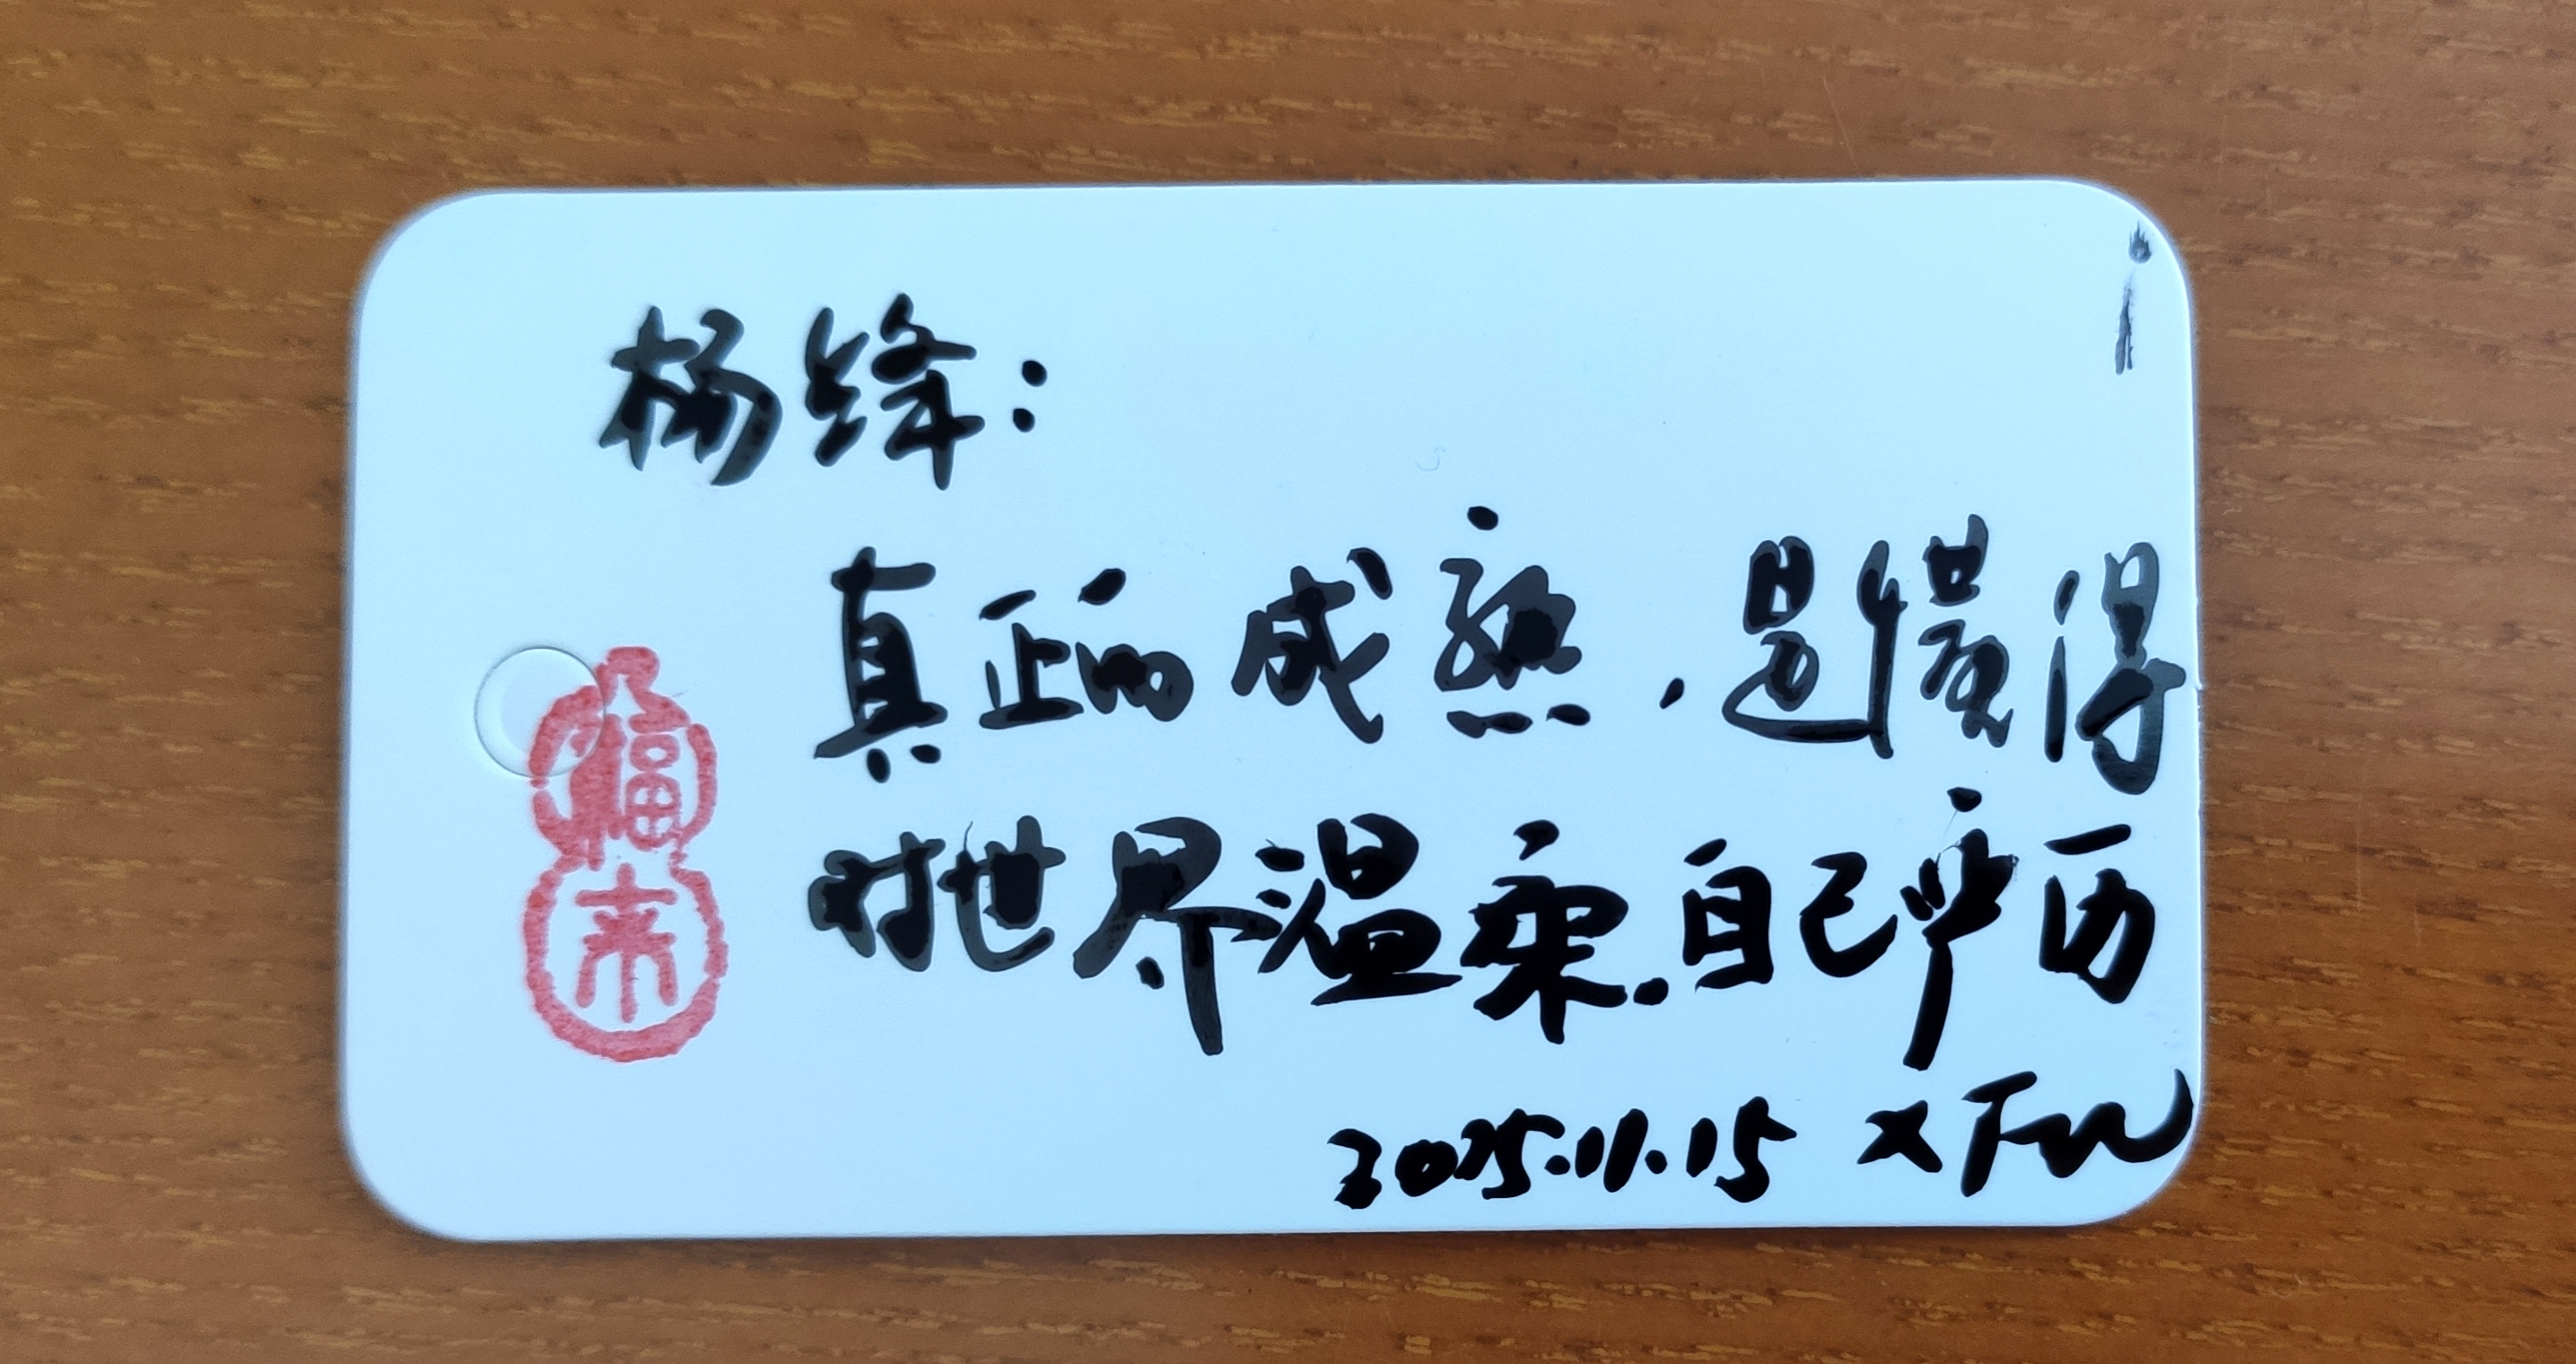 杨绛：
真正的成熟，是懂得
对世界温柔，自己严厉
2025.11.15
福
来